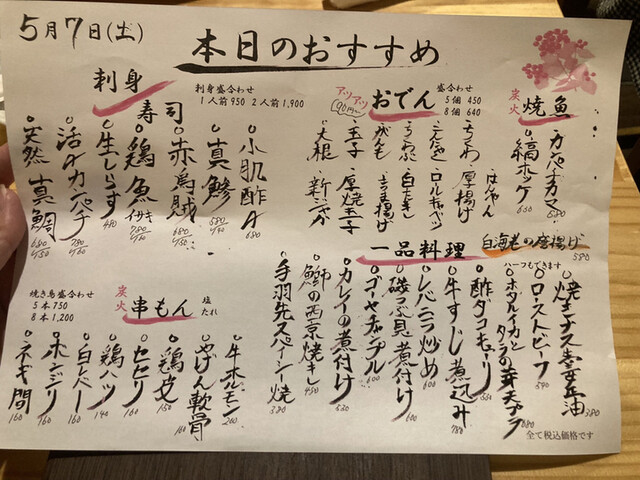 5月7日(土)
本日のおすすめ
刺身
寿司
刺身盛合わせ
1人前950 2人前1,900
小肌酢〆
680
真鯵
580
赤烏賊
680
鶏魚
イサキ
780
生しらす
480
活〆カンパチ
780
天然真鯛
680
アツアツ
おでん
盛合わせ
5個 450
8個 640
はんぺん
ちくわ
厚揚げ
ロールキャベツ
ちくわぶ
白たき
がんも
さつま揚げ
玉子
厚焼玉子
大根
新じゃが
炭火
焼魚
カンパチカマ
縞ホッケ
650
白海老の唐揚げ
580
一品料理
ハーフもできます
焼きナス
ローストビーフ
ホタルイカと
タラの芽天プラ
酢ダコキューリ
牛すじ煮込み
780
レバニラ炒め
600
磯つぶ貝煮付け
ゴーヤチャンプル
600
カレイの煮付け
鰤の西京焼き
450
手羽先スパイシー焼
焼き鳥盛合わせ
5本750
8本1,200
炭火
串もん
塩
たれ
牛ホルモン
260
やげん軟骨
160
鶏皮
150
セセリ
160
鶏ハツ
140
白レバー
160
ボンジリ
160
ネギ間
160
全て税込価格です